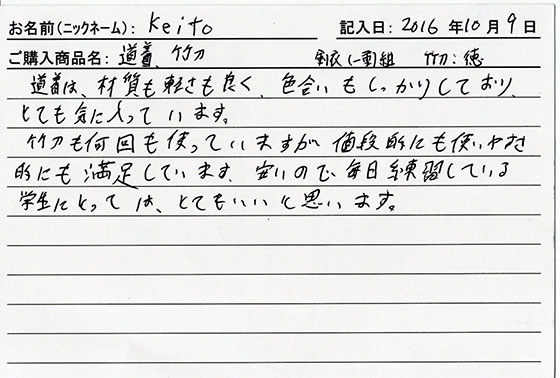 お名前(ニックネーム): keito 記入日: 2016 年 10 月 9 日
ご購入商品名: 道着、竹刀 剣衣(一重)組 竹刀:徳
道着は、材質も軽さも良く、色合いもしっかりしており、
とても気に入っています。
竹刀も何回も使っていますが、値段的にも使いやすさ
的にも満足しています。安いので、毎日練習している
学生にとっては、とてもいいと思います。